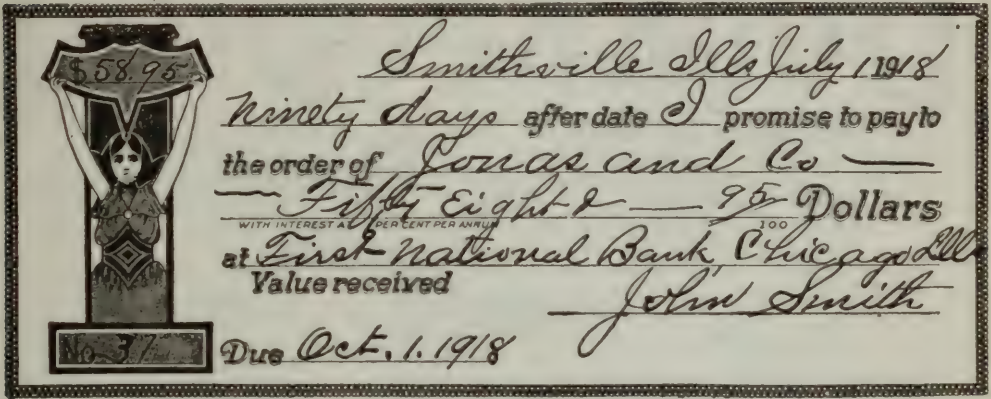 $58.95
Smithville Ills July 1 1918
Ninety days after date I promise to pay to
the order of Jonas and Co
Fifty Eight & 95/100 Dollars
WITH INTEREST AT PER CENT PER ANNUM
at First National Bank Chicago Ills
Value received
John Smith
No. 37
Due Oct. 1. 1918